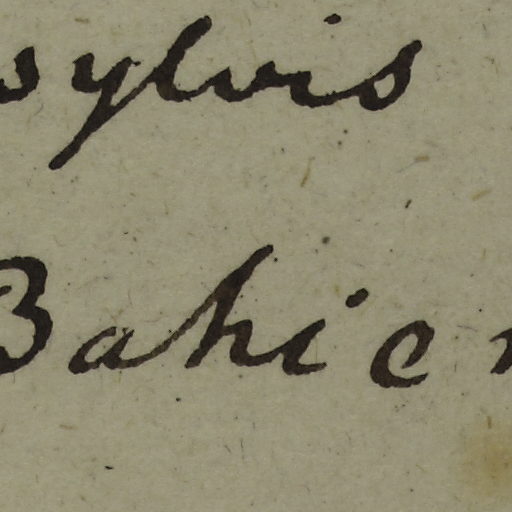 sylvis
Bahien